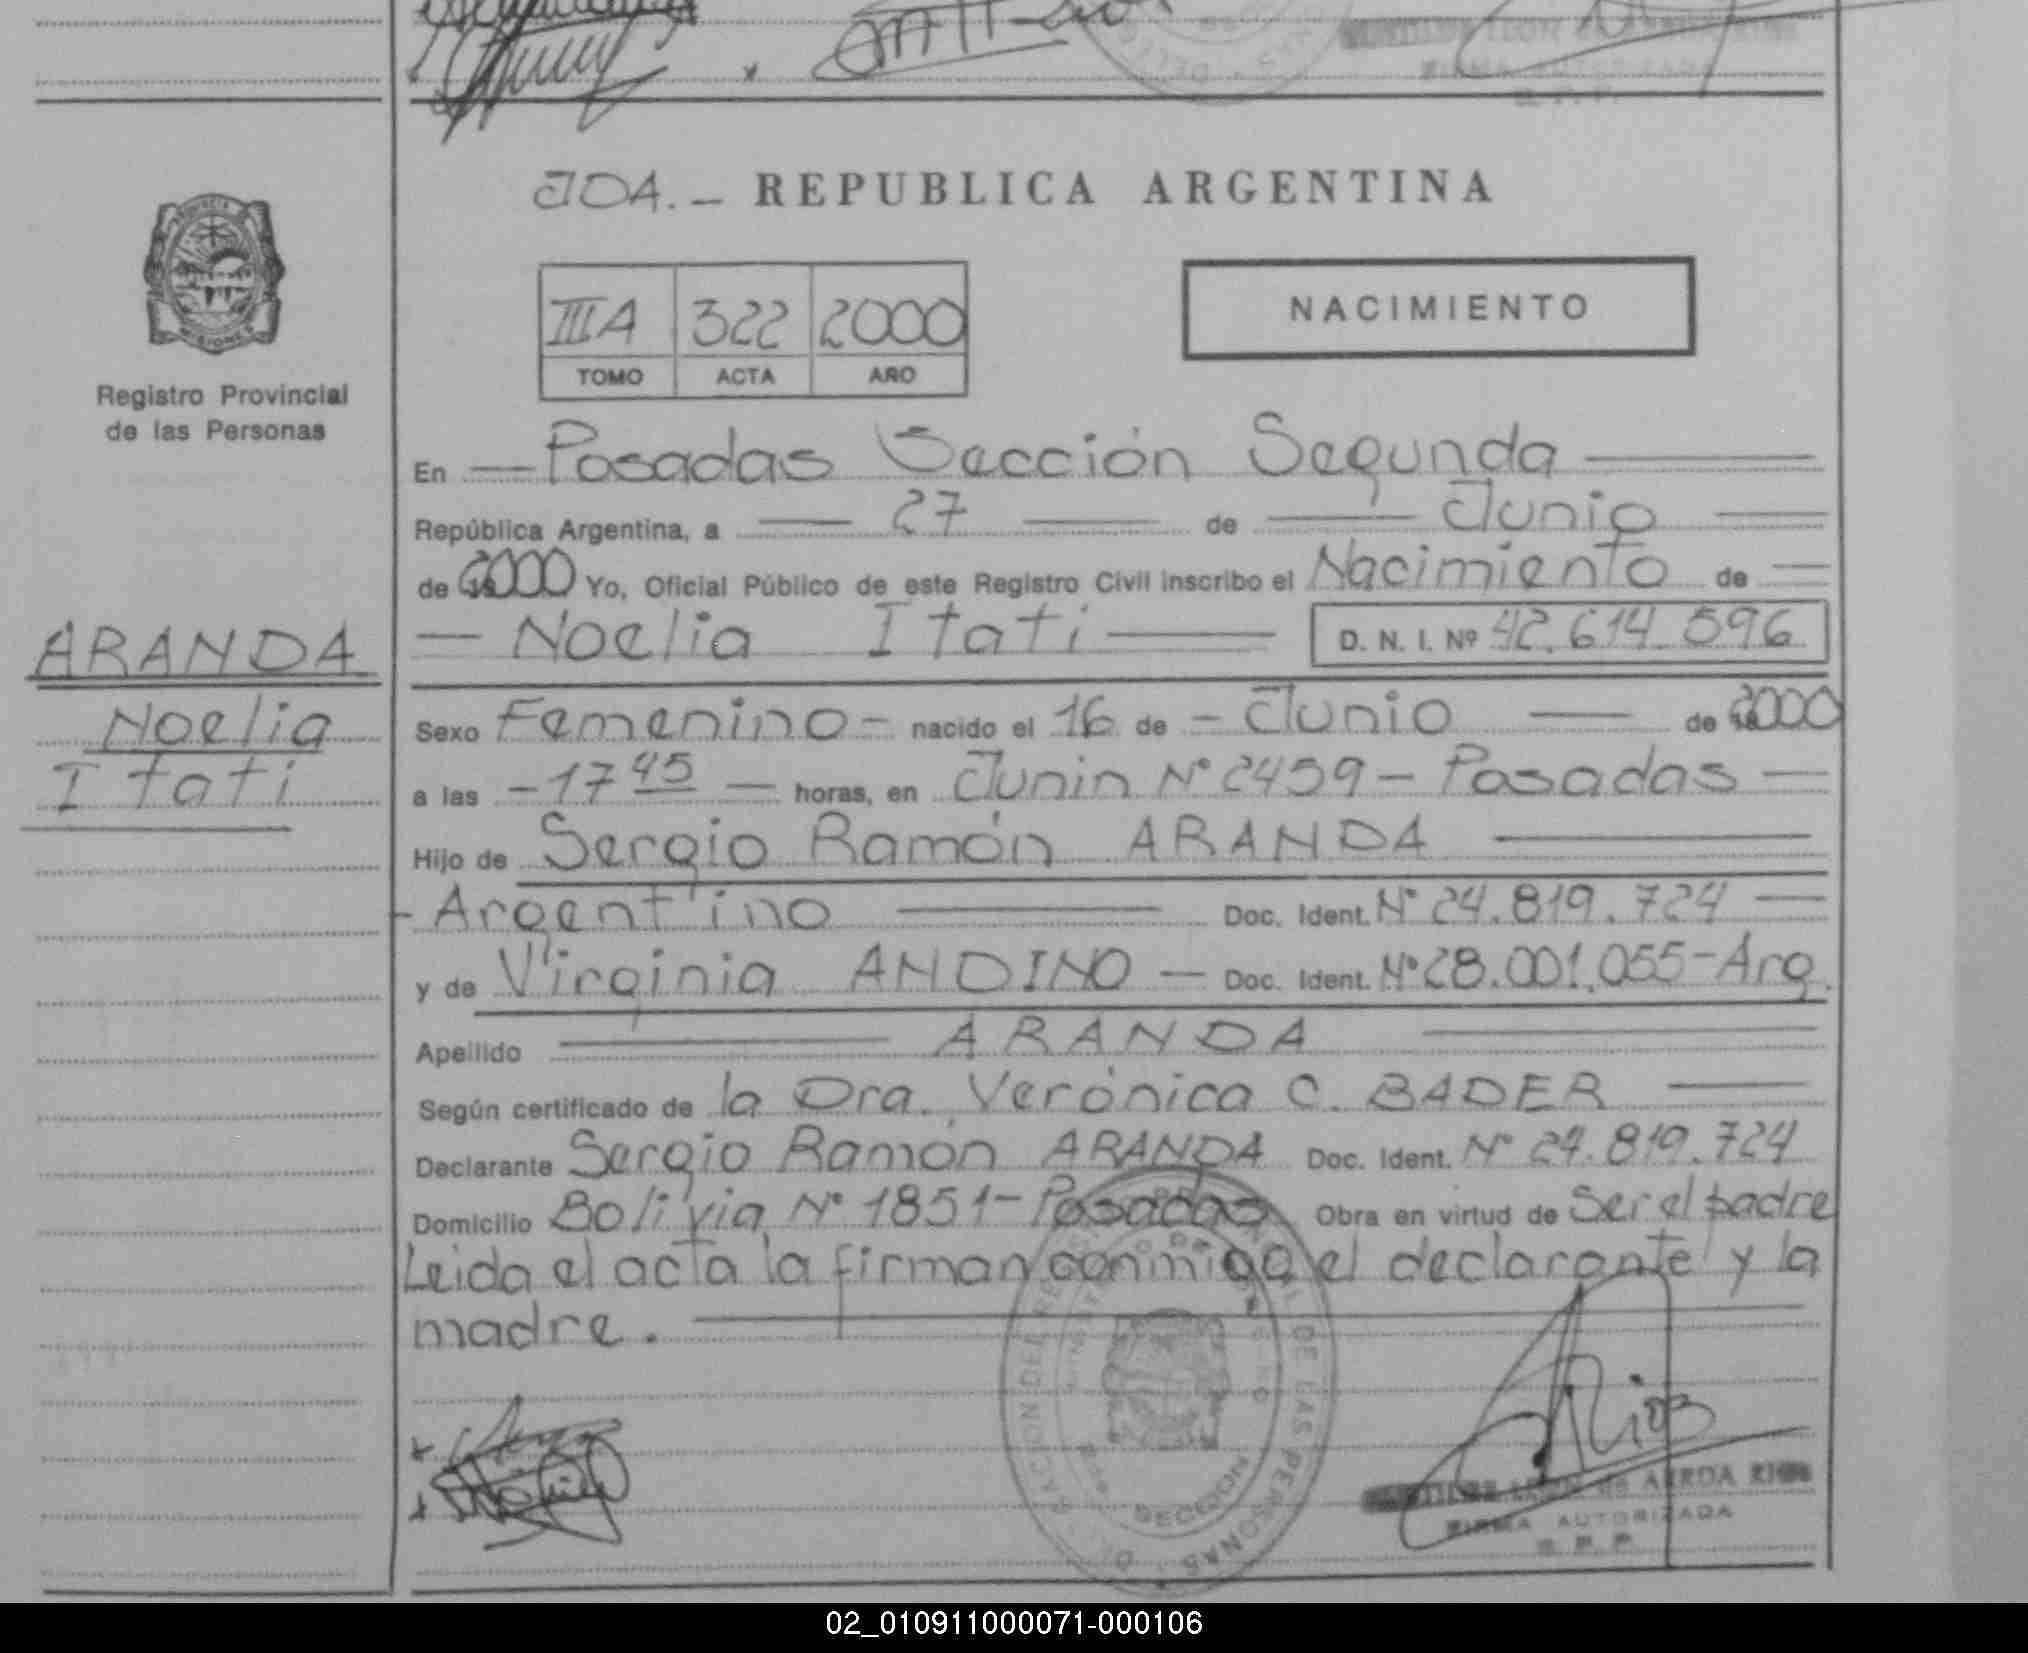 JDA.- REPUBLICA ARGENTINA
MISIONES
Registro Provincial
de las Personas
III A 322 2000
TOMO ACTA AÑO
NACIMIENTO
En — Posadas Sección Segunda —
República Argentina, a — 27 — de — Junio —
de 2000 Yo, Oficial Público de este Registro Civil inscribo el Nacimiento de —
— Noelia Itati — D. N. I. Nº 42.614.596
ARANDA
Noelia
Itati
Sexo Femenino - nacido el 16 de - Junio — de 2000
a las - 17 45 — horas, en Junin Nº 2459 - Posadas —
Hijo de Sergio Ramón ARANDA —
- Argentino — Doc. Ident. Nº 24.819.724 —
y de Virginia ANDINO — Doc. Ident. Nº 28.001.055 - Arg.
Apellido — ARANDA —
Según certificado de la Dra. Verónica C. BADER —
Declarante Sergio Ramón ARANDA Doc. Ident. Nº 24.819.724
Domicilio Bolivia Nº 1851 - Posadas Obra en virtud de Ser el padre
Leida el acta la firman conmigo el declarante y la
madre. —
DE LAS PERSONAS
SECCION
Rios
de ARRUA RIOS
FIRMA AUTORIZADA
R. P. P.
02_010911000071-000106